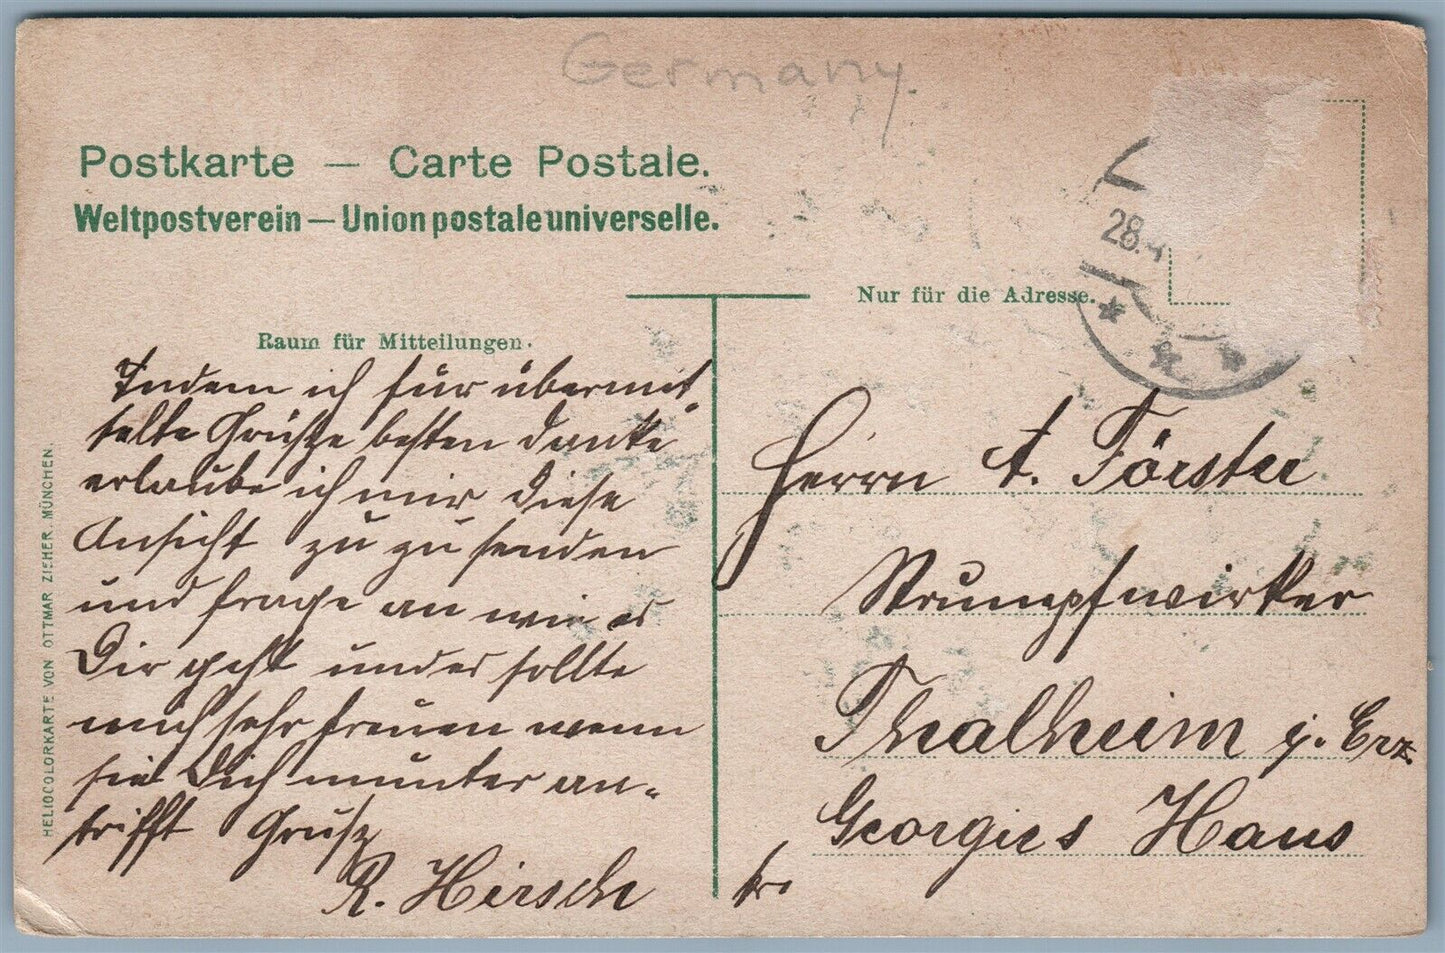 Germany.
Postkarte — Carte Postale.
Weltpostverein — Union postale universelle.
28.4
Nur für die Adresse.
Raum für Mitteilungen.
Indem ich für übermit-
telte Grüße besten Danke
erlaube ich mir diese
Ansicht zu zu senden
und frage an wie es
Dir geht und es sollte
mich sehr freuen wenn
sie Dich munter an-
trifft Grusz
R. Hirsch
Herrn A. Förster
Strumpfwirker
Thalheim i. Erz
Georgies Haus
HELIOCOLORKARTE VON OTTMAR ZIEHER, MÜNCHEN.